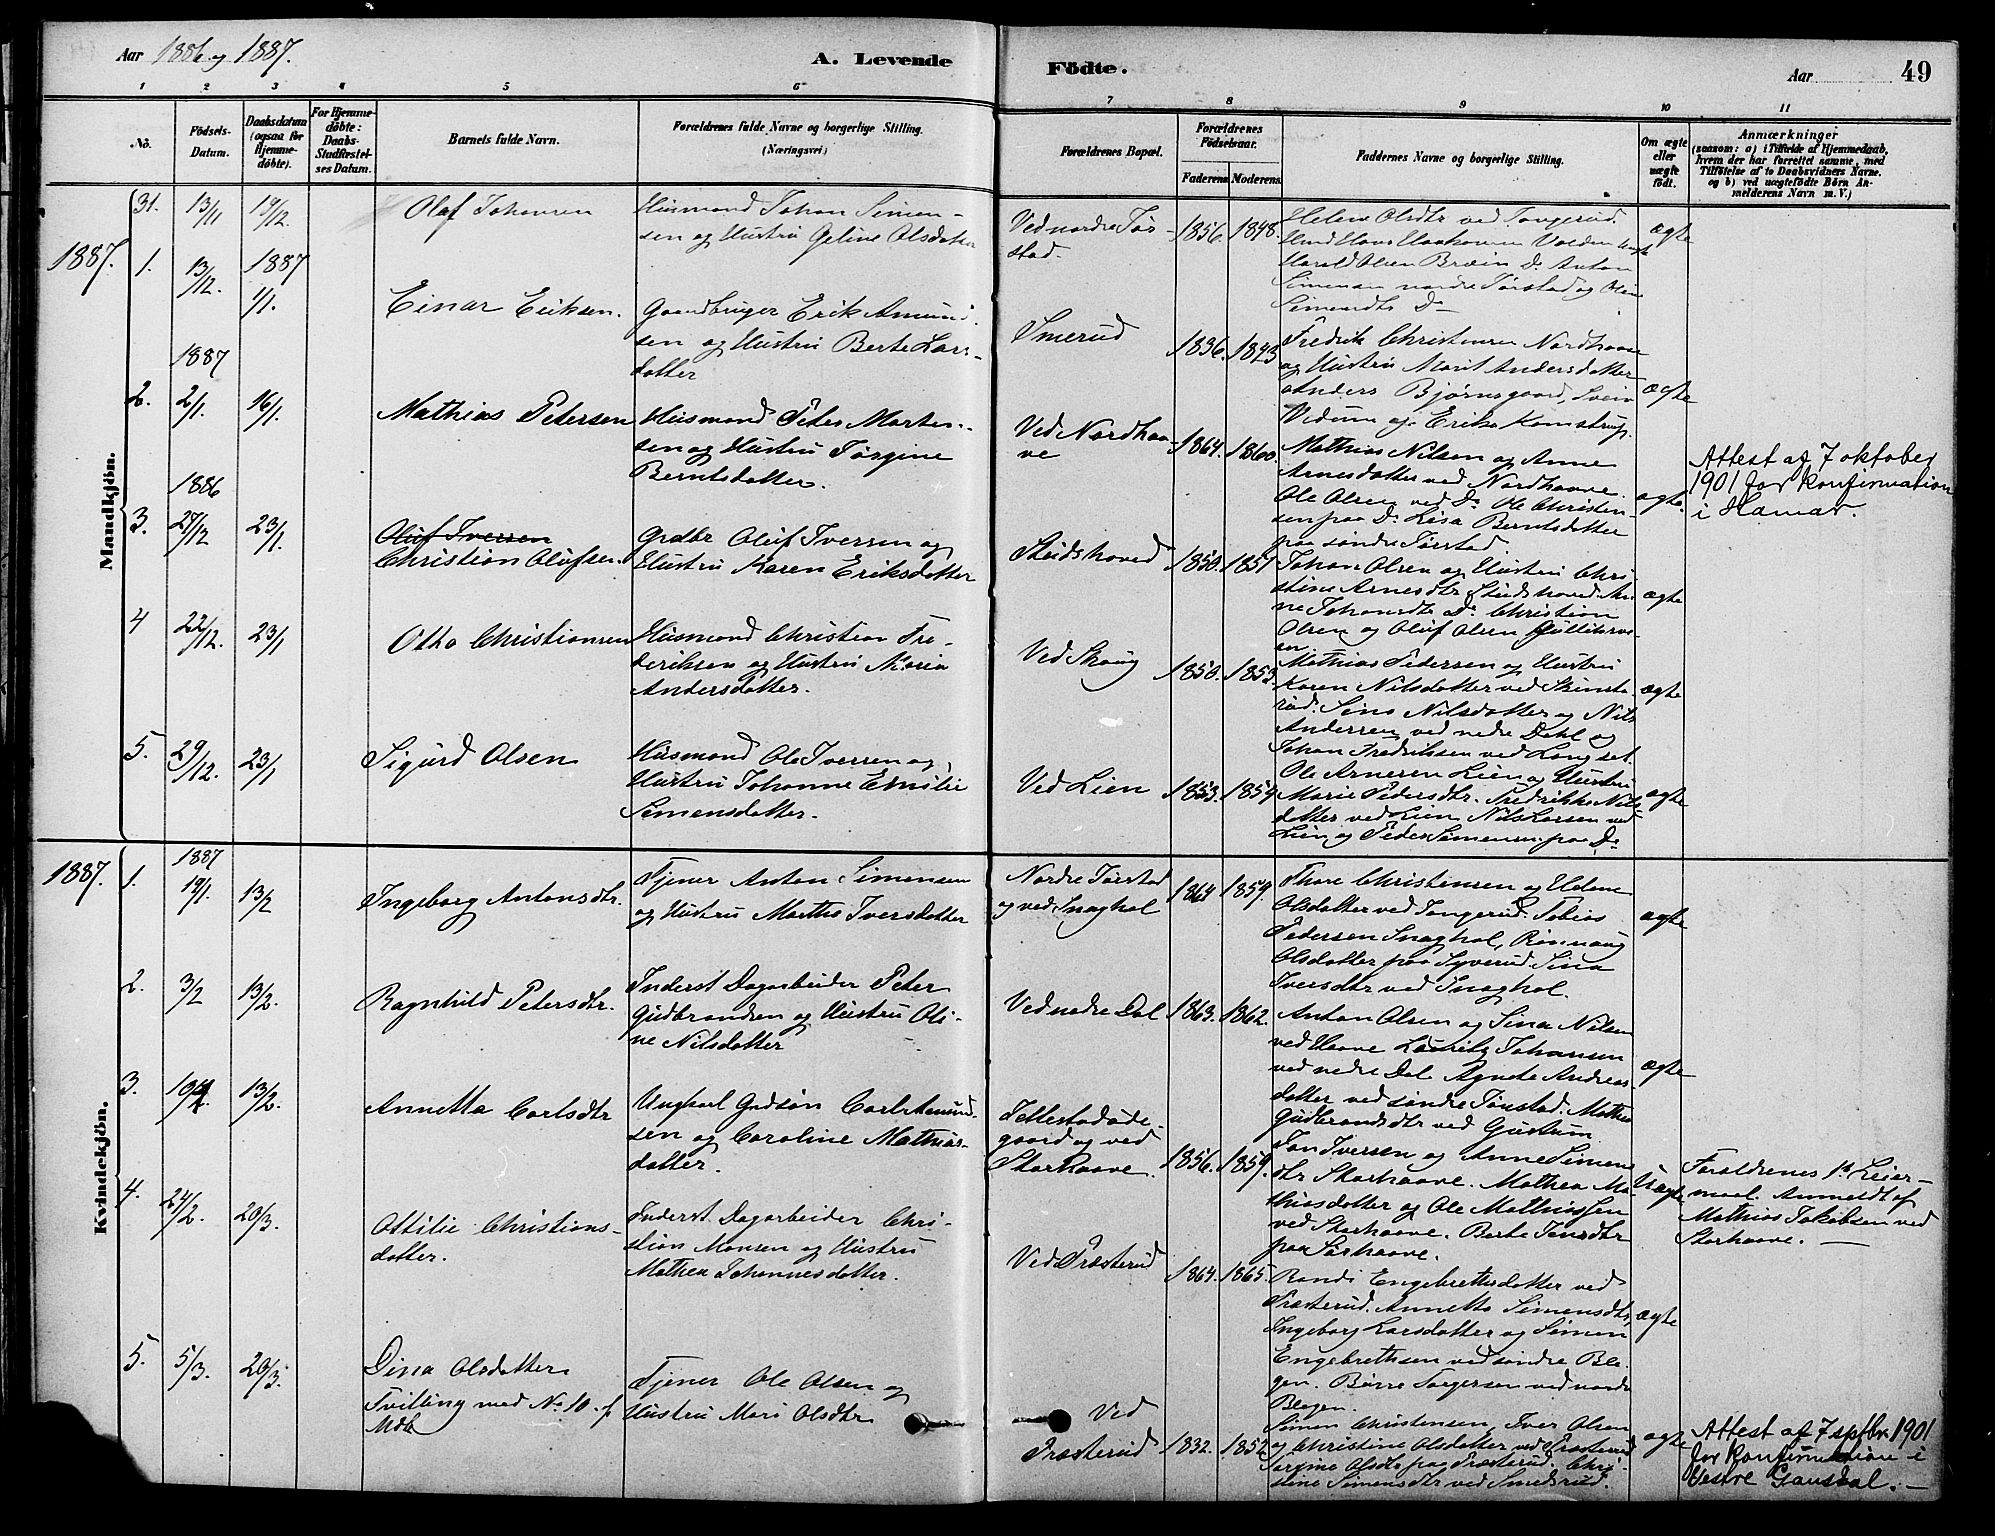 Aar 1886 og 1887.
A. Levende
Födte.
Aar
49
1 2 3 4 5 6 7 8 9 10 11
No.
Födsels-Datum.
Daabsdatum (ogsaa for Hjemmedöbte).
For Hjemmedöbte: Daabs-Stadfæstelses Datum.
Barnets fulde Navn.
Forældrenes fulde Navne og borgerlige Stilling. (Næringsvei.)
Forældrenes Bopæl.
Forældrenes Födselsaar.
Faderens. Moderens.
Faddernes Navne og borgerlige Stilling.
Om ægte eller uægte födt.
Anmærkninger
(saasom: a) i Tilfælde af Hjemmedaab,
hvem der har forrettet samme, med
Tilföielse af to Daabsvidners Navne.
og b) ved uægtefödte Börn An-
melderens Navn m. V.)
Mandkjön.
31. 13/11 19/12.
Olaf Johansen
Husmand Johan Simen-
sen og Hustru Geline Olsdatter
Ved nordre Tør-
stad.
1856. 1848.
Helene Olsdtr ved Tongerud.
Harald Olsen Bræin Do Anton
Simensen nordre Tørstad og Oline
Simensdtr Do
ægte
1887.
1. 13/12. 1887 1/1.
Einar Eriksen.
Gaardbruger Erik Amund-
sen og Hustru Berte Lars-
datter
Smerud
1836. 1843
Fredrik Christensen Nordhaave
og Hustru Marit Andersdatter
Anders Bjørnsgaard, Svein
Vidum og Erika Komstrup.
ægte
1887
2. 2/1. 16/1.
Mathias Petersen
Husmand Peter Marten-
sen og Hustru Jørgine
Berntsdatter.
Ved Nordhaa-
ve
1864. 1860.
Mathias Nilsen og Anne
Arnesdatter ved Nordhaave.
Ole Olsen ved Do Ole Christen-
sen paa Do Lisa Berntsdatter
paa søndre Tørstad.
ægte.
Attest af 7 oktober
1901 for konfirmation
i Hamar.
1886
3. 27/12 23/1.
Oluf Iversen
Christian Olufsen.
Grdbr Oluf Iversen og
Hustru Karen Eriksdatter
Skidshoved
1850. 1851
Johan Olsen og Hustru Chri-
stine Arnesdtr Skidshoved An-
ne Johansdtr Do. Christian
Olsen og Oluf Olsen
ægte
4 22/12. 23/1
Otto Christiansen
Husmand Christian Fre-
deriksen og Hustru Maria
Andersdatter.
Ved Skaug
1850. 1853.
Mathias Pedersen og Hustru
Karen Nilsdatter ved Skinsta-
rud. Sina Nilsdatter og Nils
Andersen ved nedre Dahl og
Johan Fredriksen ved Langset.
ægte
5. 29/12. 23/1
Sigurd Olsen
Husmand Ole Iversen og
Hustru Johanne Emilie
Simensdatter.
Ved Lien
1853. 1859
Ole Arnesen Lien og Hustru
Marie Pedersdtr. Fredrikke Nils-
datter ved Lien Nils Larsen ved
Lien og Peder Simensen paa Do
ægte
1887.
Kvindekjön.
1887
1. 19/1. 13/2
Ingeborg Antonsdtr.
Tjener Anton Simensen
og Hustru Marthe Iversdatter
Nordre Tørstad
og ved Snaghol
1864 1859.
Thore Christensen og Helene
Olsdatter ved Tongerud. Tobias
Pedersen Snaghol, Rønnaug
Olsdatter paa Syverud. Sina
Iversdtr ved Snaghol.
ægte
2. 3/2 13/2.
Ragnhild Petersdtr.
Inderst Dagarbeider Peter
Gudbrandsen og Hustru Oli-
ne Nilsdatter
Ved nedre Dal
1863. 1862.
Anton Olsen og Sina Nilsen
ved Haave Lauritz Johansen
ved nedre Dal Agnete Andreas-
datter ved søndre Tørstad. Mathea
Gudbrandsdtr ved Gustum
ægte
3. 10/2. 13/2.
Annetta Carlsdtr
Ungkarl Grdsøn Carl Amund-
sen og Caroline Mathias-
datter.
Tellestadøde-
gaard og ved
Storhaave.
1856. 1859.
Jon Iversen og Anne Simens
dtr Storhaave. Mathea Ma-
thiasdatter og Ole Mathiassen
ved Storhaave. Berte Jonsdtr
paa Sørhaave.
Uægte
Forældrenes 1ste Leier-
maal. Anmeldt af
Mathias Jakobsen ved
Storhaave.
4. 24/2. 20/3.
Ottilie Christians-
datter.
Inderst Dagarbeider Chri-
stian Monsen og Hustru
Mathea Johannesdatter.
Ved Præsterud
1864. 1865
Randi Engebrettsdatter ved
Præsterud. Annette Simensdtr,
Ingeborg Larsdatter og Simen
Engebrethsen ved søndre Ble-
gen. Børre Torgersen ved nordre
Blegen.
ægte
5. 5/3. 20/3.
Dina Olsdatter
Tvilling med No 10. f
Mdk
Tjener Ole Olsen og
Hustru Mari Olsdtr
Ved
Præsterud
1832. 1852
Simen Christensen, Iver Olsen
og Christine Olsdatter ved Præsterud
Jørgine Olsdtr paa Præsterud. Chri-
stine Simensdtr ved Smedsrud.
ægte
Attest af 7 sptbr 1901
for konfirmation i
Vestre Gausdal.